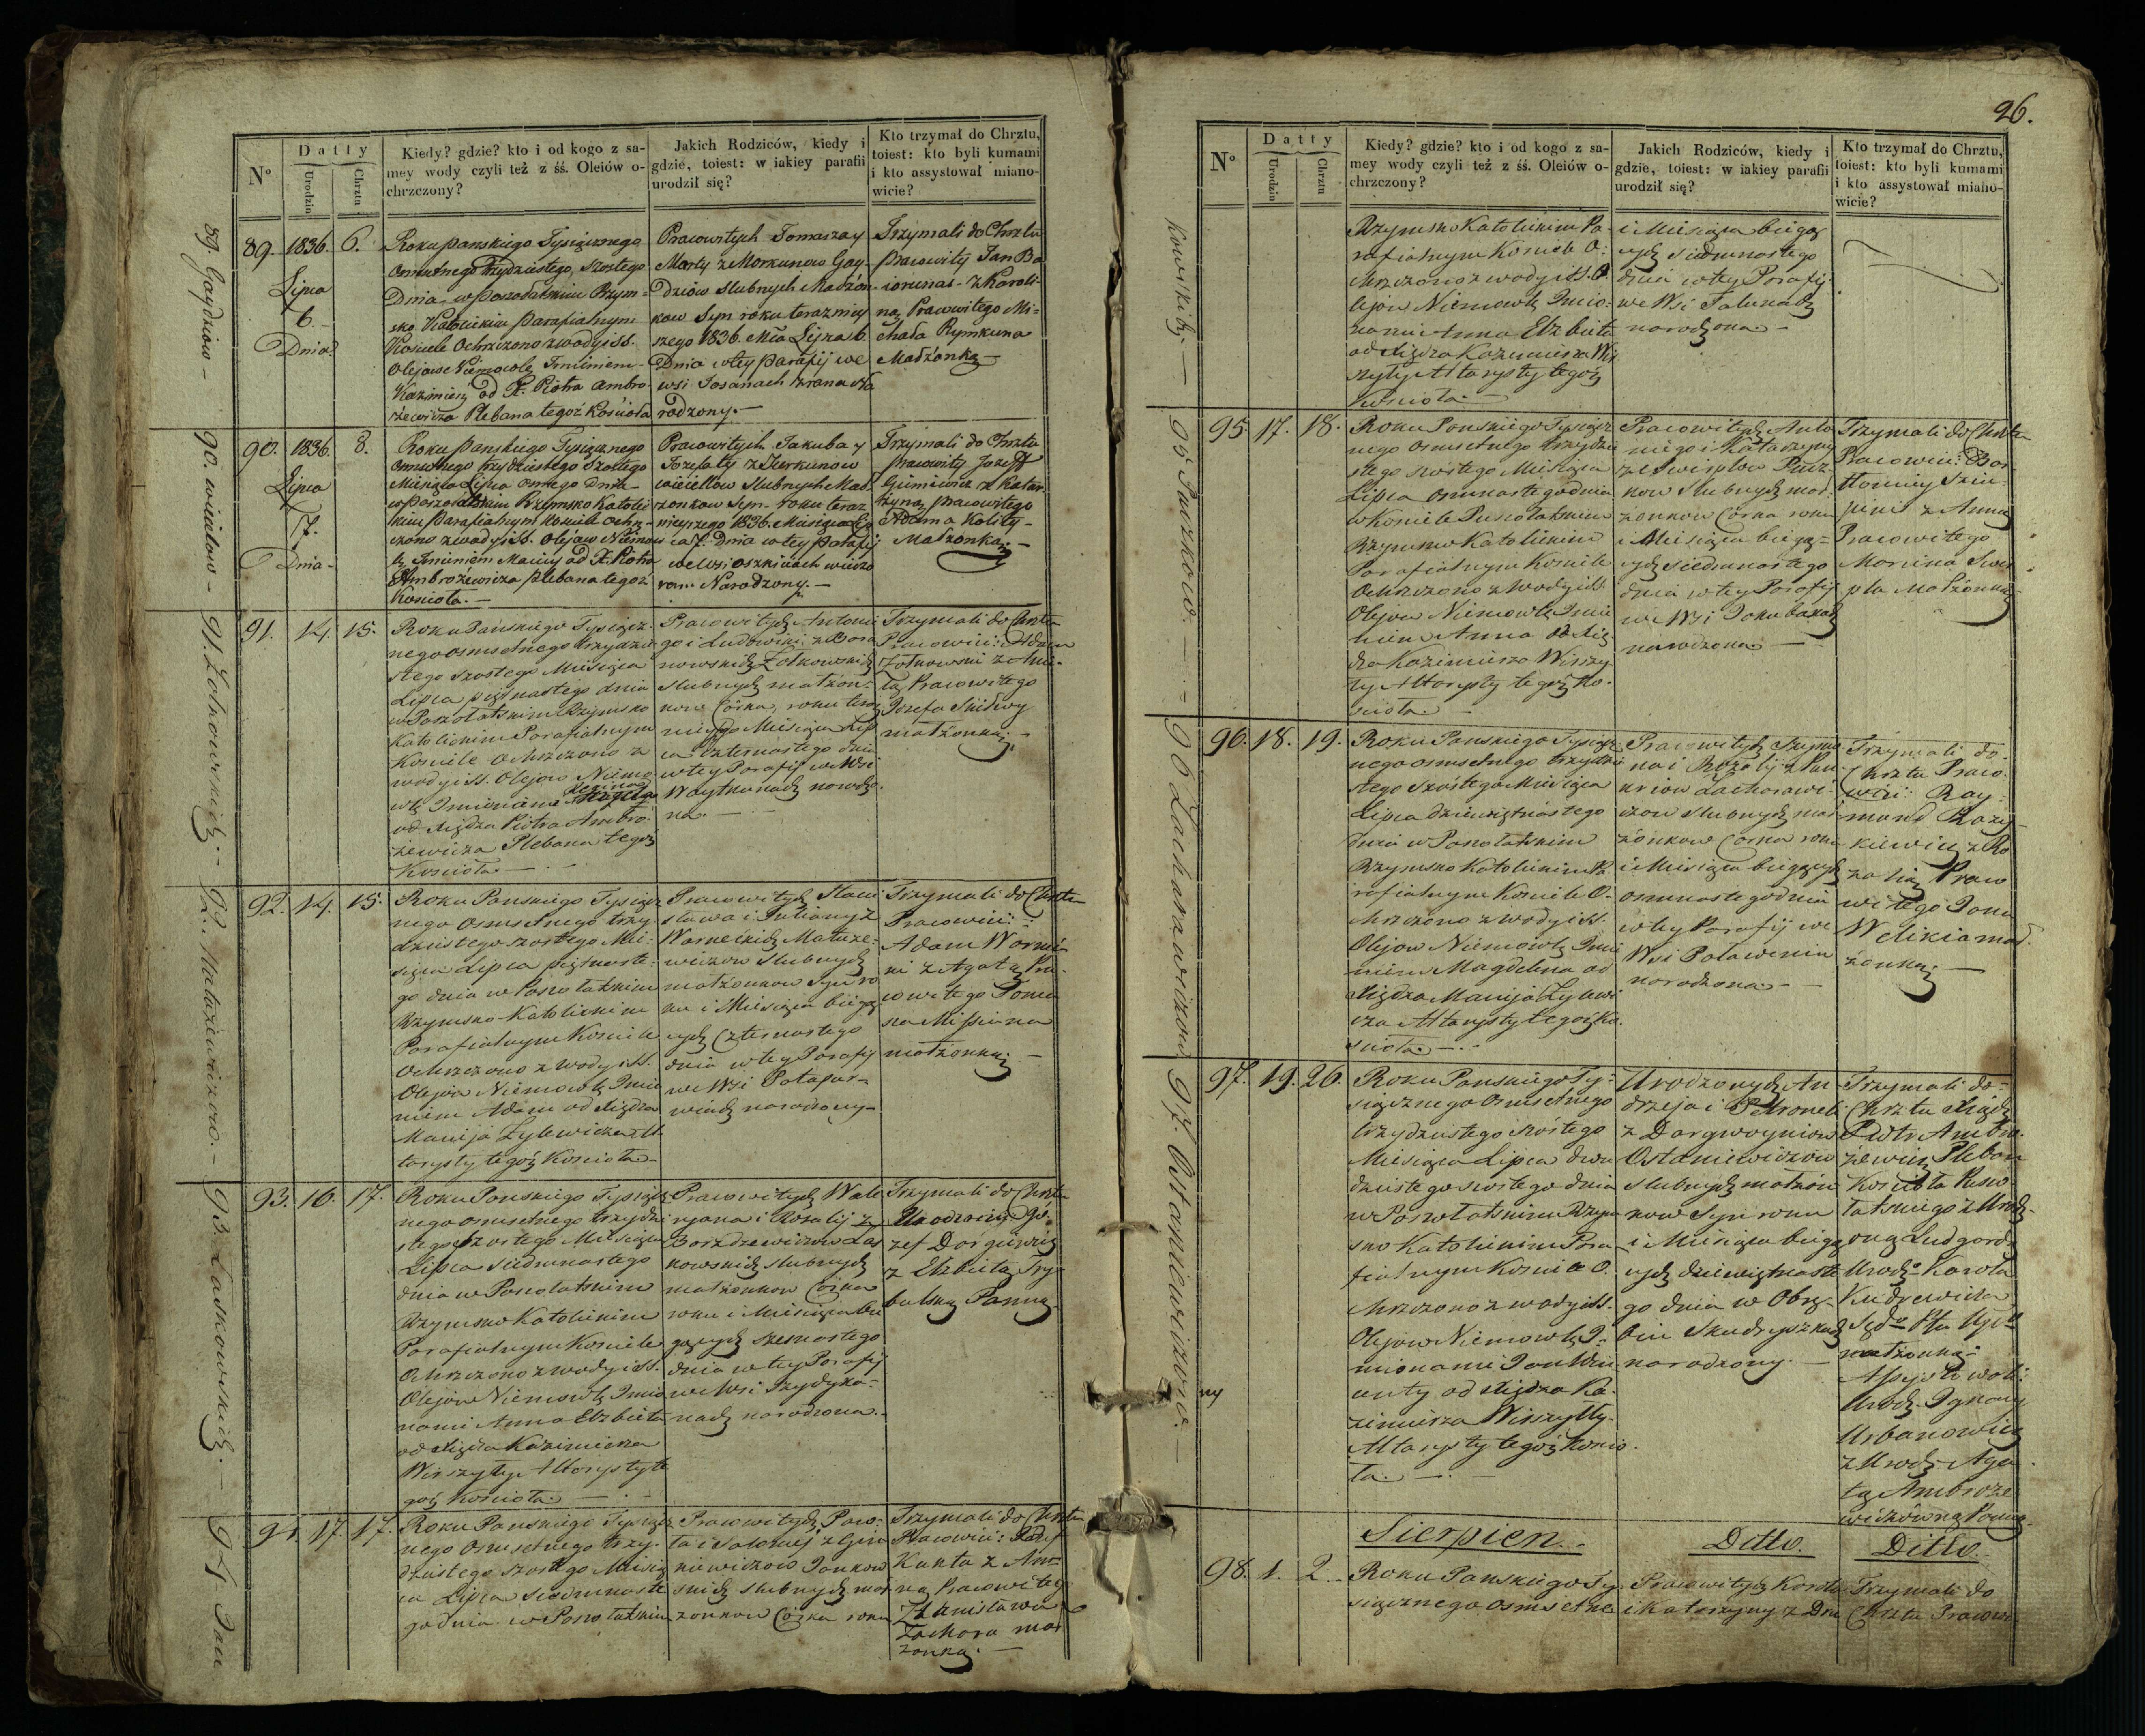 26.
Nº
Datty
Urodzin
Chrztu
Kiedy? gdzie? kto i od kogo z sa-
mey wody czyli też z śś. Oleiów o-
chrzczony?
Jakich Rodziców, kiedy i
gdzie, toiest: w iakiey parafii
urodził się?
Kto trzymał do Chrztu,
toiest: kto byli kumami
i kto assystował miano-
wicie?
89. Gaydziow -
89.
1836.
Lipca
6
Dnia
6.
Roku Panskiego Tysiącznego
Osmsetnego Trzydziestego, Szostego
Dnia w Poszołatskim Rzym-
sko Katolickim Parafialnym
Kosciele Ochrzczono z wody i SS.
Olejow Niemowlę Imieniem
Kazimierz od X. Piotra Ambro-
żewicza Plebana tegoż Kościoła
Pracowitych Tomasza y
Marty z Morkunow Gay-
Dziow Slubnych Madżon-
kow Syn roku terazniey
szego 1836. Mca Lipca 6.
Dnia w tey Parafij we
wsi Josanach zrana Na
rodzony. -
Trzymali do Chrztu
Pracowity Jan Ba
z Karoli-
ną Pracowitego Mi-
chała Rymkuna
Madżonką -
90.
90.
1836.
Lipca
7.
Dnia -
8.
Roku Panskiego Tysiącznego
Osmsetnego trzydziestego Szostego
Miesiąca Lipca osmego Dnia
w Poszołatskim Rzymsko Katolic
kim Parafialnym Kosciele Ochrz-
czono z wody i SS. Olejow Niemow
lę Imieniem Maciey od X. Piotra
Ambrożewicza Plebana tegoż
Kosciola. -
Pracowitych Jakuba y
Jozefaty z Skerkunow
Slubnych Mał-
zonkow Syn - roku teraz
nieyszego 1836. Miesiąca Lip
ca 7. Dnia w tey Parafij
we wsi Oszkiniach wieczo
rem Narodzony. -
Trzymali do Chrztu
Pracowity Jozeff
z Katar
żyną Pracowitego
Adama Kality-
Małzonką. -
91. Żołkowskich -
91.
14.
15.
Roku Pańskiego Tysiącz-
nego osmsetnego trzydzie
stego szostego Miesiąca
Lipca piętnastego dnia
w Poszołatskim Rzymsko
Katolickim Parafialnym
Kosciele Ochrzczono z
wody i SS. Olejow Niemo
wlę Imieniem
od Xiędza Piotra Ambro-
żewicza Plebana tegoż
Kosciola -
Pracowitych Antoni
go i Ludowiki z Bara
nowskich Żołkowskich
Slubnych małżon-
kow Córka, roku teraz
nieyszego Miesiąca Lip
ca czternastego dnia
w tey Parafij we Wsi
Waytkunach narodzo-
na. -
Trzymali do Chrztu
Pracowici: Adam
Żołkowski z Ane-
lą Pracowitego
Jozefa
małżonką. -
92. Matuzewiczow. -
92.
14.
15.
Roku Panskiego Tysiącz
nego Osmsetnego trzy-
dziestego szostego Mie-
siąca Lipca piętnaste-
go dnia w Poszołatskim
Rzymsko-Katolickim
Parafialnym Kosciele
Ochrzczono z wody i SS.
Olejow Niemowlę Imie
niem Adam od Xiędza
Macieja Zylewicza Al
tarysty tegoż Kosciola -
Pracowitych Stani
sława i Julianny z
Warneckich Matuze-
wiczow slubnych
małżonkow Syn ro
ku i Miesiąca bieżą
cych Czternastego
dnia w tey Parafij
we Wsi Potapur-
wiach narodzony -
Trzymali do Chrztu
Pracowici:
Adam Warnec
ki z Agatą Pra-
cowitego Toma
sza Missiuna
małżonką. -
93. Laskowskich. -
93.
16.
17.
Roku Panskiego Tysiącz
nego osmsetnego trzydzi
stego szostego Miesiąca
Lipca siedmnastego
dnia w Poszołatskim
Rzymsko Katolickim
Parafialnym Kosciele
Ochrzczono z wody i SS.
Olejow Niemowlę Imio
nami Anna Elzbieta
od Xiędza Kazimierza
Wirszyłły Altarysty te
goż Kosciola. -
Pracowitych Wale
ryana i Rozalij z
Borzdzewiczow Las
kowskich slubnych
małżonkow Córka
roku i Miesiąca bie
gących szesnastego
dnia w tey Parafij
we Wsi
nach narodzona. -
Trzymali do Chrztu
Urodzeni: Jo-
zef Dargiewicz
z Elzbietą Try-
bulską Panną
94. Jan
94.
17.
17.
Roku Panskiego Tysiącz
nego Osmsetnego trzy-
dziestego szostego Miesią
ca Lipca siedmnaste
go dnia w Poszołatskim
Pracowitych Paw-
ła i Salomej z Gin
niewiczow Jankow
skich slubnych mał
zonkow Córka roku
Trzymali do Chrztu
Pracowici: Jozef
Kunta z An-
ną Pracowiteg
Stanisława
Zachara mał
zonką. -
Nº
Datty
Urodzin
Chrztu
Kiedy? gdzie? kto i od kogo z sa-
mey wody czyli też z śś. Oleiów o-
chrzczony?
Jakich Rodziców, kiedy i
gdzie, toiest: w iakiey parafii
urodził się?
Kto trzymał do Chrztu,
toiest: kto byli kumami
i kto assystował miano-
wicie?
kowskich. -
Rzymsko Katolickim Pa-
rafialnym Kosciele O-
chrzczono z wody i SS. O-
lejow Niemowlę Imio-
nami Anna Elzbieta
od Xiędza Kazimierza Wir
szyłły Altarysty tegoż
Kosciola. -
i Miesiąca bieżą
cych siedmnastego
dnia w tey Parafij
we Wsi Talunach
narodzona. -
95 Puczkow. -
95
17.
18.
Roku Panskiego Tysiącz
nego Osmsetnego trzydzie
stego szostego Miesiąca
Lipca osmnastego dnia
w Kosciele Puszołatskim
Rzymsko Katolickim
Parafialnym Kosciele
Ochrzczono z Wody i SS.
Olejow Niemowlę Imie
niem Anna od Xię
dza Kazimierza Wirszy
łły Altarysty tegoż Ko-
sciola. -
Pracowitych Anto
niego i Katarzyny
z Swirplow Pucz-
kow slubnych mał-
żonkow Córka roku
i Miesiąca biegą-
cych siedmnastego
dnia w tey Parafij
we Wsi Jokubaxach
narodzona -
Trzymali do Chrztu
Pracowici: Bar-
tłomiey
z Anną
Pracowitego
Marcina Swir
pla Małżonką.
96 Zacharawiczow
96.
18.
19.
Roku Panskiego Tysiącz
nego osmsetnego trzydzie
stego szóstego Miesiąca
Lipca dziewiętnastego
dnia w Poszołatskim
Rzymsko Katolickim Pa
rafialnym Kosciele O-
chrzczono z wody i SS.
Olejow Niemowlę Imie
niem Magdelena od
Xiędza Macieja Zylewi
cza Altarysty tegoż Ko-
sciola. -
Pracowitych Szymo
na i Rozalij z Pun-
kriow Zacharawi-
czow slubnych mał
żonkow Córka roku
i Miesiąca biegących
osmnastego dnia
w tey Parafij we
Wsi Poławeniu
narodzona. -
Trzymali do
Chrztu Praco-
wici: Ray-
mund
z Ro
zalią Praco
witego Jana
Welikia mał-
żonką. -
97. Ostaniewiczow. -
97.
19.
26.
Roku Panskiego Ty-
siącznego Osmsetnego
trzydziestego szóstego
Miesiąca Lipca dwu
dziestego szostego dnia
w Poszołatskim Rzym
sko Katolickim Para-
fialnym Kosciele O-
chrzczono z wody i SS.
Olejow Niemowlę I-
mionami Jan Win
centy od Xiędza Ka-
zimierza Wirszyłły
Altarysty tegoż Koscio-
la. -
ny
Urodzonych An
drzeja i Petroneli
z Dargwoyniow
Ostaniewiczow
slubnych małżon
kow Syn roku
i Miesiąca biegą
cych dziewiętnaste
go dnia w Obrę-
bie Skudryszkach
narodzony. -
Trzymali do
Chrztu Xiądz
Piotr Ambro-
żewicz Pleban
Kosciola Puszo
łatskiego z Urodz-
oną Ludgardą
Urodz. Karola
Kudrewicza
małżonką.
Assystowali:
Urodz. Ignacy
Urbanowicz
z Urodz. Aga-
tą Ambroże
wiczówną Panną.
Sierpien. -
Ditto.
Ditto. -
98.
1.
2.
Roku Panskiego Ty-
siącznego osmsetne
Pracowitych Karola
i Katarzyny z Dru
Trzymali do
Chrztu Pracowi-